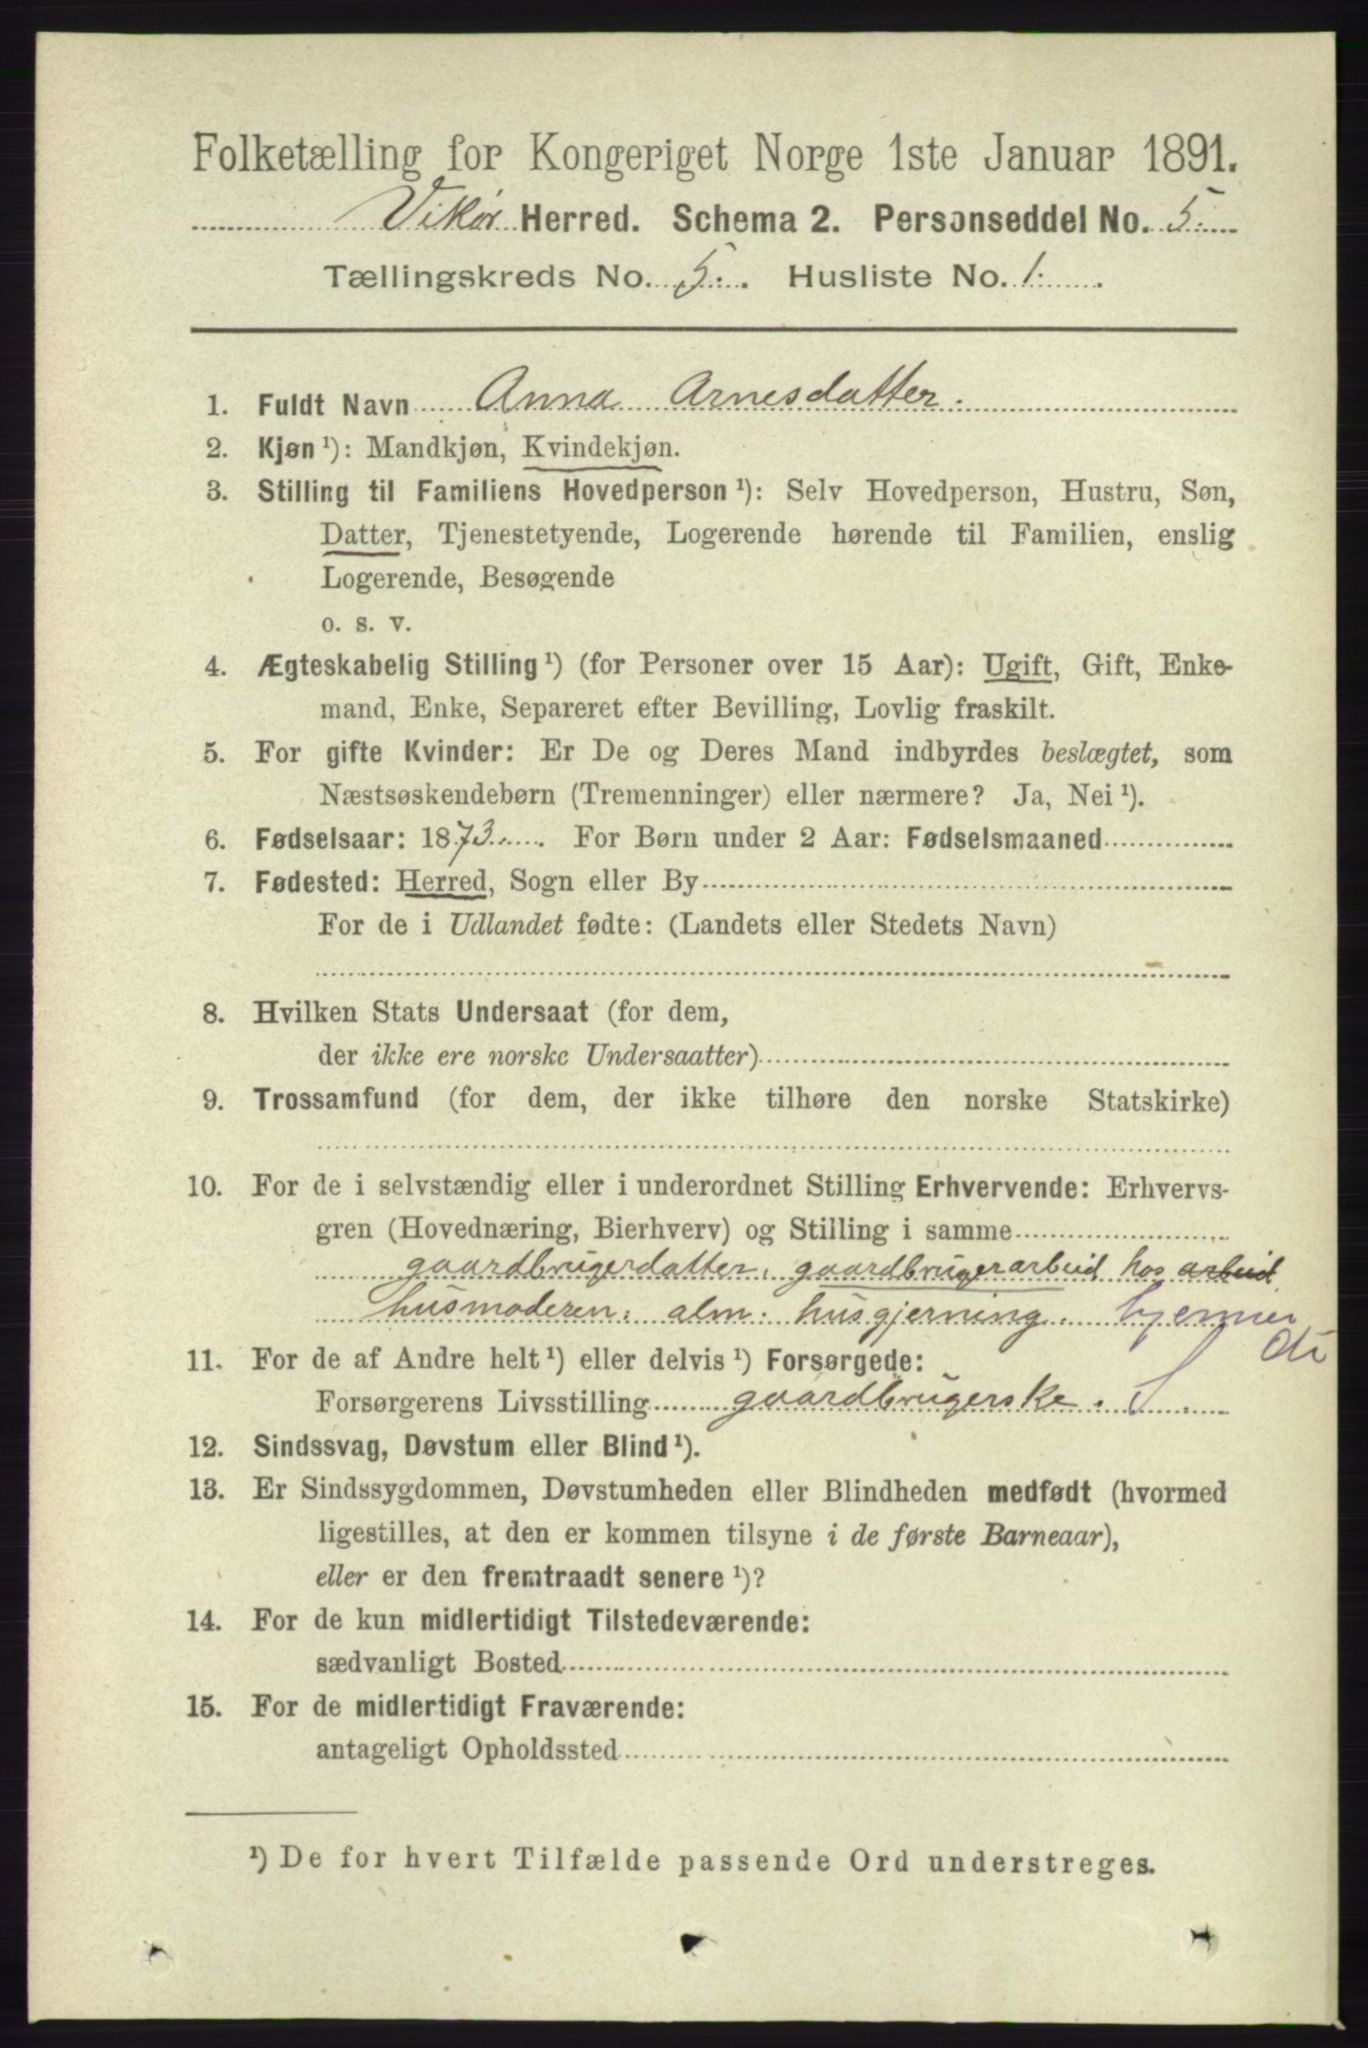 Folketælling for Kongeriget Norge 1ste Januar 1891.
Vikør Herred. Schema 2. Personseddel No. 5.
Tællingskreds No. 5. Husliste No. 1.
1. Fuldt Navn Anna Arnesdatter.
2. Kjøn ¹): Mandkjøn, Kvindekjøn.
3. Stilling til Familiens Hovedperson ¹): Selv Hovedperson, Hustru, Søn,
Datter, Tjenestetyende, Logerende hørende til Familien, enslig
Logerende, Besøgende
o. s. v.
4. Ægteskabelig Stilling ¹) (for Personer over 15 Aar): Ugift, Gift, Enke-
mand, Enke, Separeret efter Bevilling, Lovlig fraskilt.
5. For gifte Kvinder: Er De og Deres Mand indbyrdes beslægtet, som
Næstsøskendebørn (Tremenninger) eller nærmere? Ja, Nei ¹).
6. Fødselsaar: 1873. For Børn under 2 Aar: Fødselsmaaned
7. Fødested: Herred, Sogn eller By
For de i Udlandet fødte: (Landets eller Stedets Navn)
8. Hvilken Stats Undersaat (for dem,
der ikke ere norske Undersaatter)
9. Trossamfund (for dem, der ikke tilhøre den norske Statskirke)
10. For de i selvstændig eller i underordnet Stilling Erhvervende: Erhvervs-
gren (Hovednæring, Bierhverv) og Stilling i samme
gaardbrugerdatter. gaardbrugerarbeid hos arbeid
husmoderen: alm. husgjerning.
11. For de af Andre helt ¹) eller delvis ¹) Forsørgede:
Forsørgerens Livsstilling gaardbrugerske. S
12. Sindssvag, Døvstum eller Blind ¹).
13. Er Sindssygdommen, Døvstumheden eller Blindheden medfødt (hvormed
ligestilles, at den er kommen tilsyne i de første Barneaar),
eller er den fremtraadt senere ¹)?
14. For de kun midlertidigt Tilstedeværende:
sædvanligt Bosted
15. For de midlertidigt Fraværende:
antageligt Opholdssted
¹) De for hvert Tilfælde passende Ord understreges.